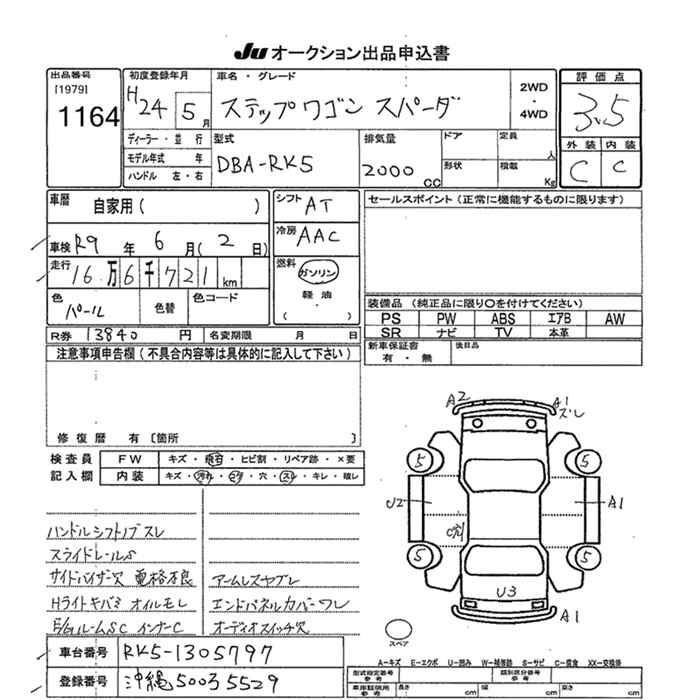 Ju オークション出品申込書
出品番号
[1979]
1164
初度登録年月
H24 5月
車名・グレード
ステップワゴン スパーダ
2WD
・
4WD
評価点
3.5
外装 内装
C C
ディーラー・並行
モデル年式 年
ハンドル 左・右
型式
DBA-RK5
排気量
2000 cc
ドア
形状
定員
人
積載
Kg
車歴
自家用( )
シフト AT
冷房 AAC
車検 R9年 6月( 2日)
走行 16万6千721km
燃料
ガソリン
軽油
( )
色
パール
色替
色コード
R券 13840 円
名変期限 月 日
セールスポイント(正常に機能するものに限ります)
装備品(純正品に限り○を付けてください)
PS PW ABS エアB AW
SR ナビ TV 本革
新車保証書
有・無
後日品
注意事項申告欄(不具合内容等は具体的に記入して下さい)
修復歴 有〔箇所 〕
検査員
記入欄
FW
キズ・飛石・ヒビ割・リペア跡・×要
内装
キズ・汚れ・コゲ・穴・スレ・キレ・破レ
ハンドルシフトノブスレ
スライドレールS
サイドバイザー欠 電格不良
Hライトキバミ オイルモレ
E/GルームSC インナーC
アームレスヤブレ
エンドパネルカバーワレ
オーディオスイッチ欠
A2
A1
スレ
5
5
U2
A1
C穴
5
5
U3
A1
スペア
A-キズ E-エクボ U-凹み W-補修跡 S-サビ C-腐食 XX-交換歴
車台番号 RK5-1305797
登録番号 沖縄 500 ろ 5529
型式指定番号
参考
類別区分番号
参考
車庫証明用
参考
長さ cm
幅 cm
高さ cm